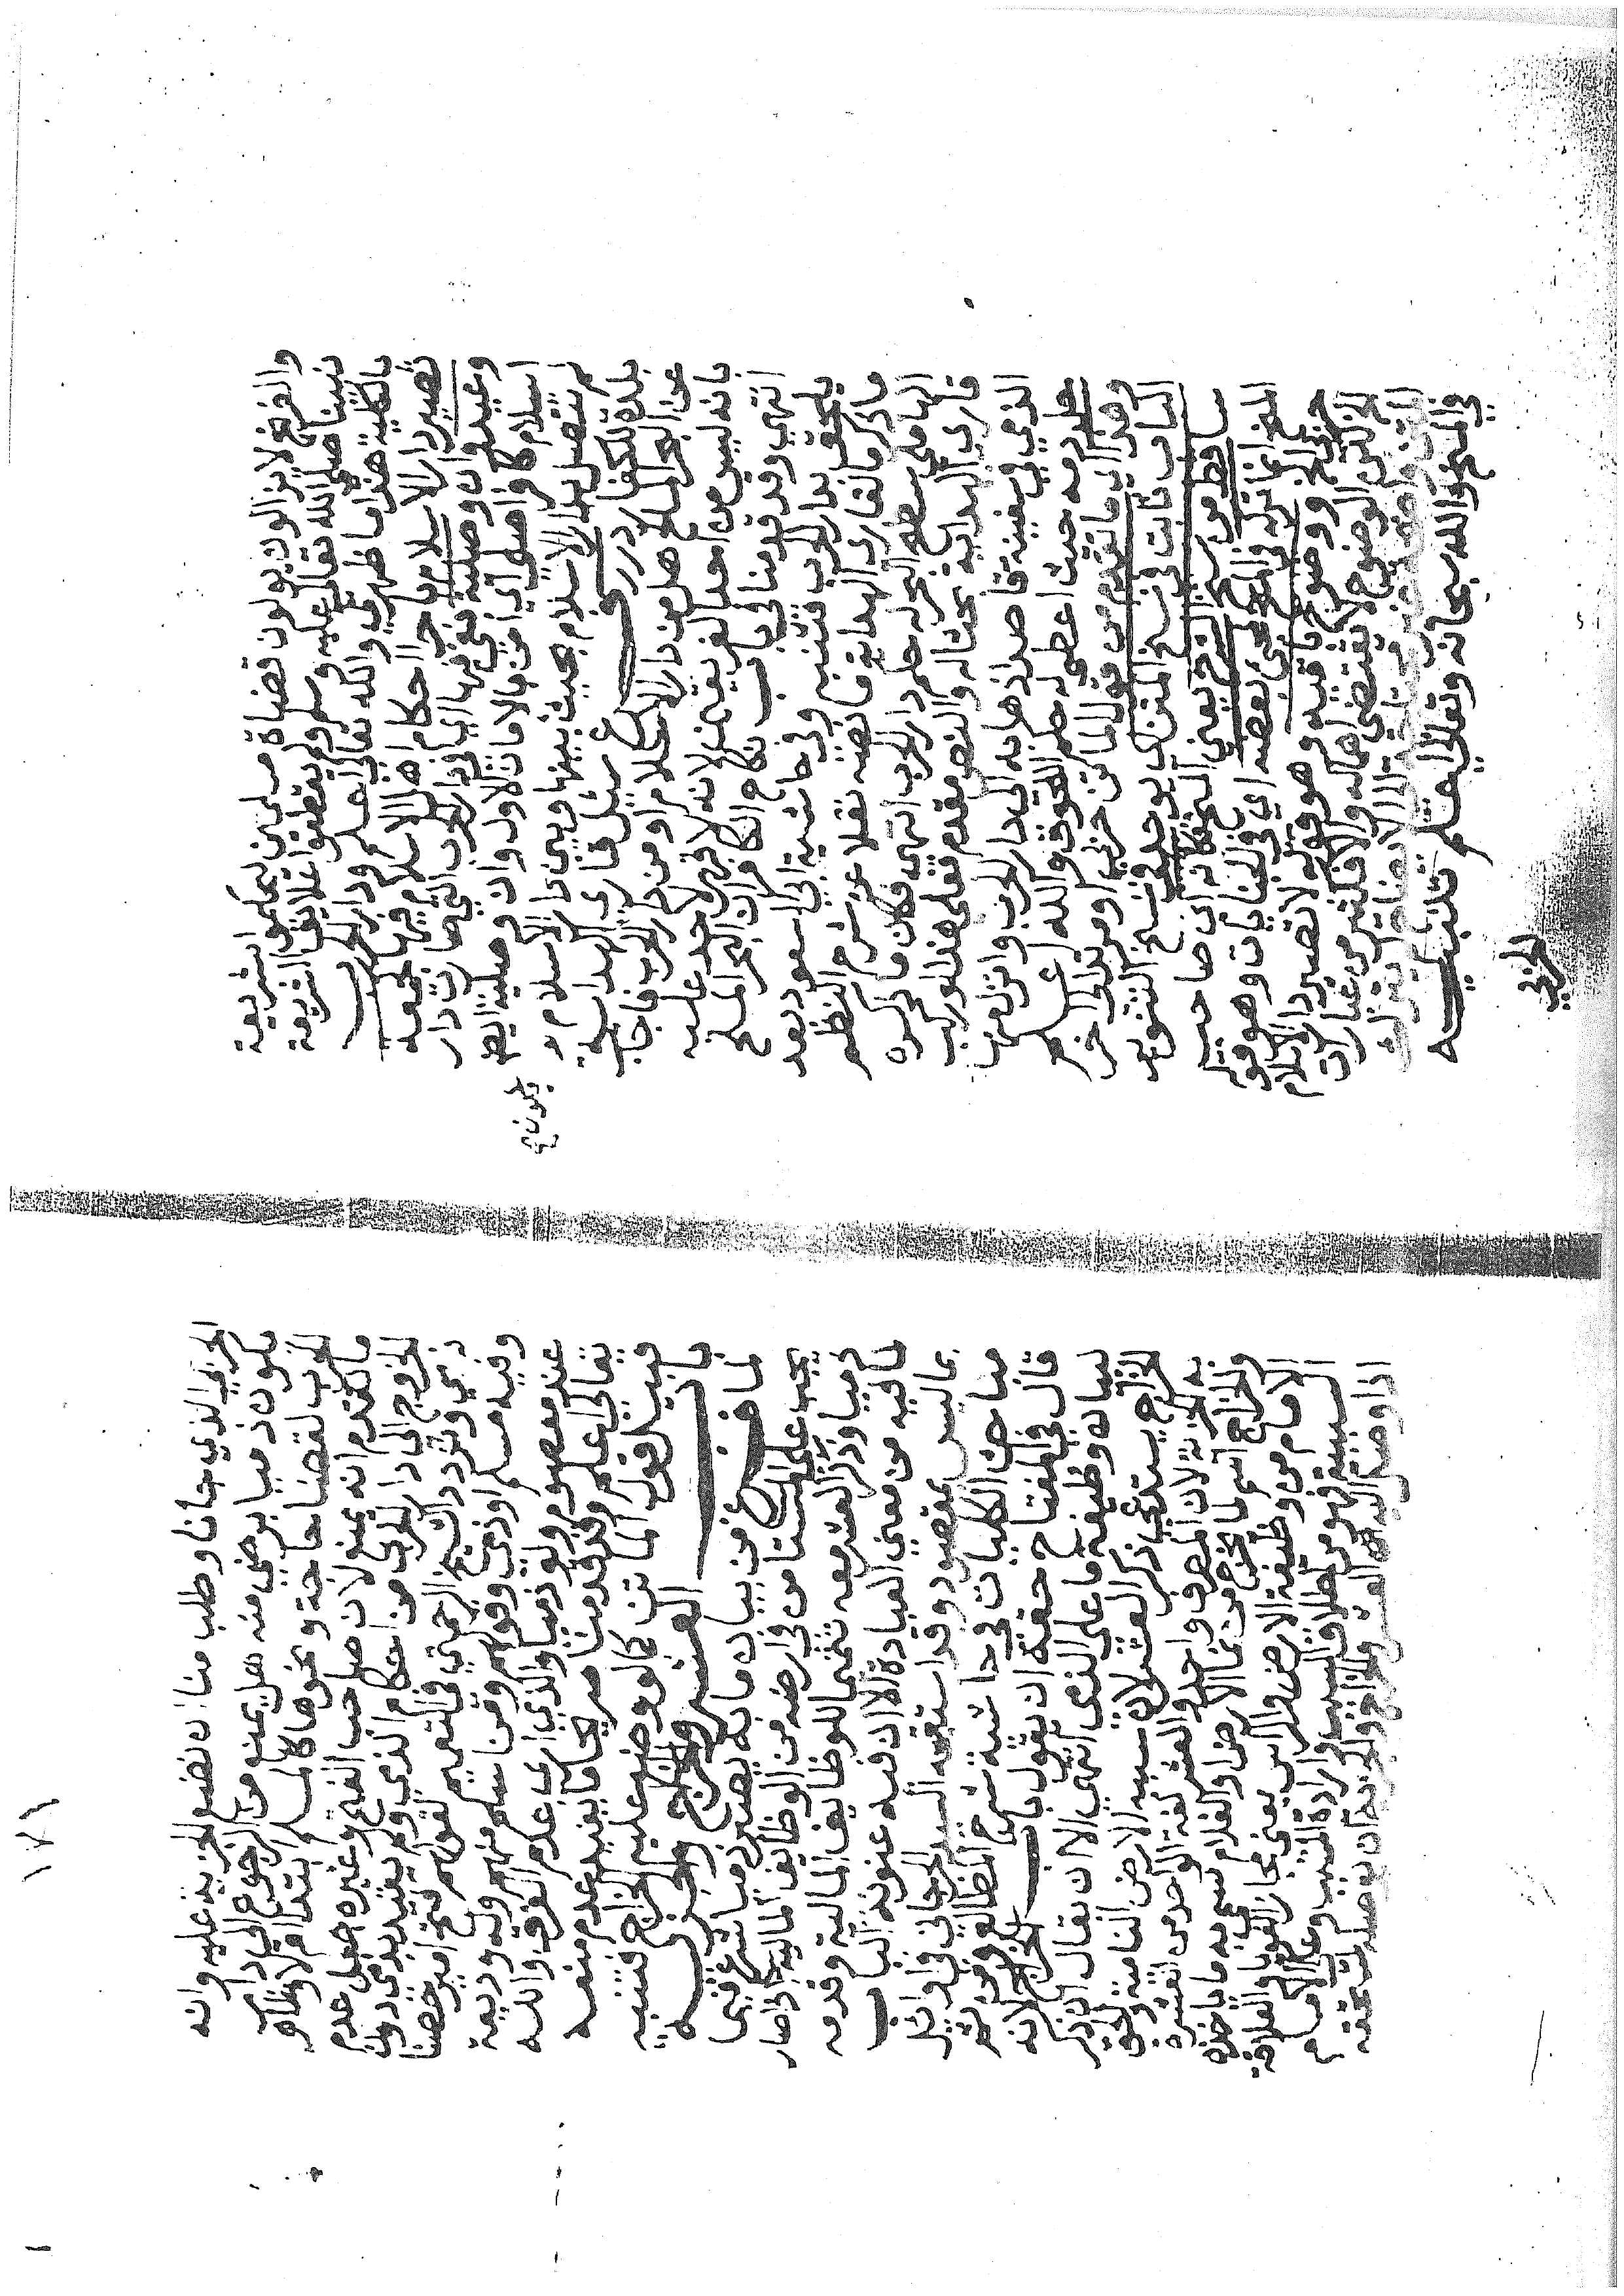 والفرنج لا يزالون يولون قضاة مسلمين يحكموا بشريعة
نبينا صلى الله تعالى عليه وسلم ولم يقطعوا علايق الشريعة
بالكلية هذا ما ظهر لي والله تعالى اعلم ودار الحرب
تصير دار الاسلام باجرا احكام اهل الاسلام فيها كجمعة
وعيد وان وصلية بقي فيها اي في دار الحرب التي صارت دار
اسلام كافر اصلي اي امن بالامان الاول وان وصلية ايضا
لم يتصل بدار الاسلام بحيث بينها وبين دار الاسلام
بلدة للكفار درر سئل قاري الهداية
عن البحر الملح هل هو من دار الاسلام او من دار الحرب فاجاب
بانه ليس من احد الفريقين لانه لا قهر لاحد عليه
انتهى وقد قدمنا في باب نكاح الكافر ان البحر الملح
يلحق بدار الحرب فتنبه وفي حاشية ابي السعود بعد
ما ذكر ما لقاري الهداية ما نصه نقلا عن شرح النظم
الهاملي سطح البحر له حكم دار الحرب انتهى فكان ما ذكره
قاري الهداية بحثا له والنص مقدم فعلى هذا لو ركب
الذمي في سفينة قاصدا ذهابه الى دار الحرب وانزل عنها
هدر دمه حيث اعطي له حكم اللحوق والله اعلم
وهذا اي ما تقدم من قول الماتن حربي او مرتد الى اخر
الباب ثابت في نسخ المتن اي يوجد في نسخ التنوير
ساقط من نسخ الشرح يعني المنح كانه اي صاحب
المنح انما تركه لمجيء بعضه اي في الجنايات وهو قوله
حربي الخ ووضوح باقيه وهو قوله لا تصير دار الاسلام
الخ لكن الوضوح لا يقتضي اهماله والا فكثير من عبارات
المتن واضحة
في المنح والله سبحانه وتعالى اعلم تنبيه
الحربي
١٧١
الحربي الذي جانا وطلب منا ان نضع الجزية عليه وانه
يكون ذميا برضى منه هل يمنع من الرجوع الى دار
الحرب لقضا حاجة ونحوها كالمسلم ابتدا ام لا وظاهر
ما تقدم انه يمنع لان صاحب الفتح وغيره جعل عدم
الخروج الى دار الحرب من احكام الذمي ولم يقيد بذمي دون
ذمي وتردد الشيخ الرحمتي في التعميم لقولهم فتح امير حصنا
وفيه مسلم او ذمي وقولهم ومن اسلم منهم وله وديعة
عند معصوم ولو ذميا والذي ارى عدم الفرق والله
تعالى اعلم وقد قدمنا صريحا ما يفيد عدم منعه
قبيل قول الماتن كما لو وضع عليه الخراج فتنبه
باب العشر والخراج والجزية
لما فرغ من بيان ما به يصير ذميا شرع فيما
يجب على المستامن في ارضه من الوظايف المالية اذا صار
ذميا وذكر العشر معه تتميما للوظايف المالية وقدمه
لما فيه من معنى العبادة الا ان فيه عنونة الباب
بما ليس بمقصود وقد استقبحه السيد الجرجاني في اوائل
مباحث الكليات في حاشية شرح المطالع ومن ثم
قال في المفتاح حقه ان يقول باب الخراج لانه
لبيان وظيفة ما على الذمي انتهى الا ان يقال ان ذكر
الخراج يستدعي ذكر العشر لان سببه الارض النامية والحق
به الجزية لان المصرف واحد والعشر لغة الواحد من العشرة
والخراج اسم لما يخرج من غلة الارض او الغلام سمي به ما ياخذه
الامام من وظيفة الارض والراس يعني مجازا لغويا والعلاقة
السببية فهو من اطلاق السبب وارادة المسبب وعلى الامام
اذا وضع اليه العشر والخراج والجزية ان يوصله لمستحقه